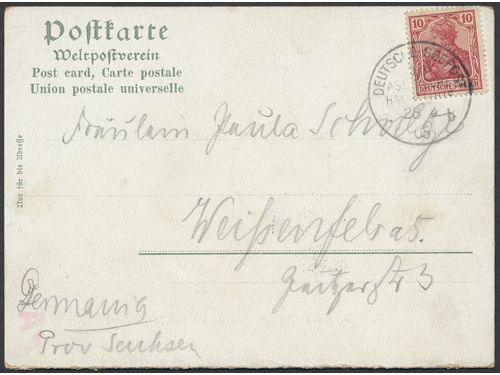 Postkarte
Weltpostverein
Post card, Carte postale
Union postale universelle
10 10
DEUTSCHES REICH
DEUTSCHE SEEPOST
28 4
03
Nur für die Adresse
Fräulein Paula
Weißenfels
Zeitzerstr 3
Germania
Prov Sachsen